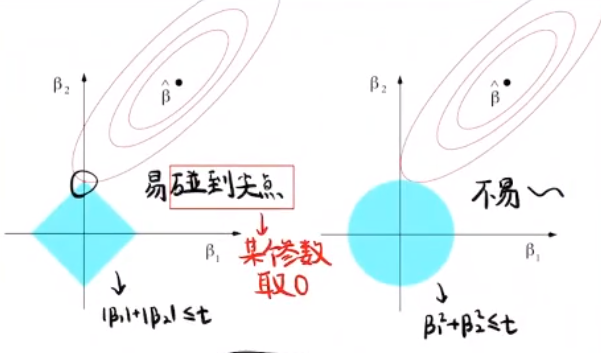 β₂
β̂
易碰到尖点
β₁
↓
某个参数
取0
↓
|β₁|+|β₂|≤t
β₂
β̂
不易~
β₁
↓
β₁²+β₂²≤t